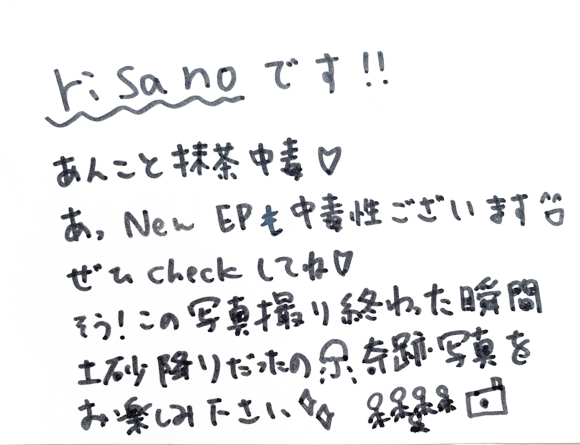 risanoです!!
あんこと抹茶中毒♡
あっ New EPも中毒性ございます
ぜひcheckしてね♡
そう!この写真撮り終わった瞬間
土砂降りだったの 奇跡写真を
お楽しみ下さい